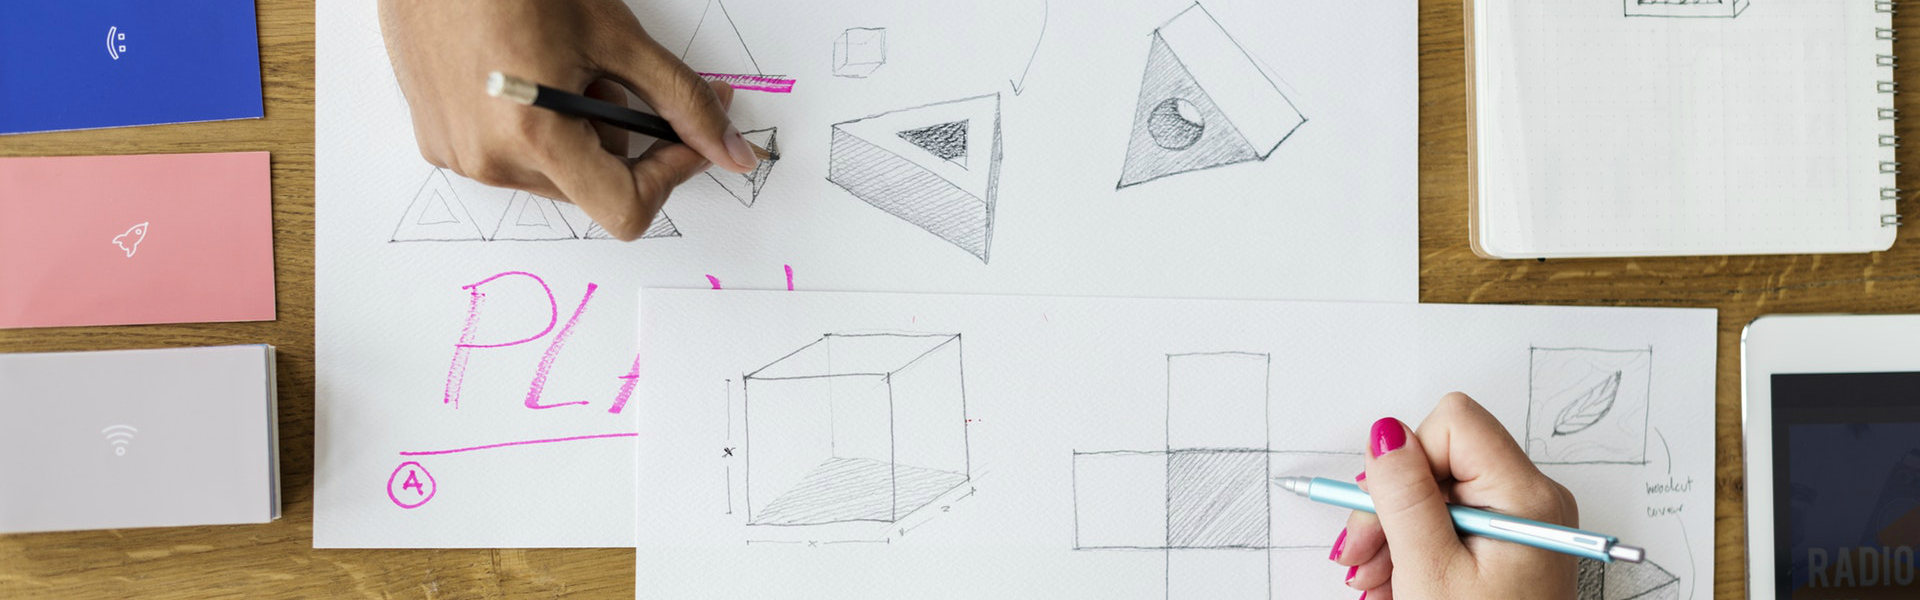 PLA
A
x
x
z
woodcut
cover
RADIO